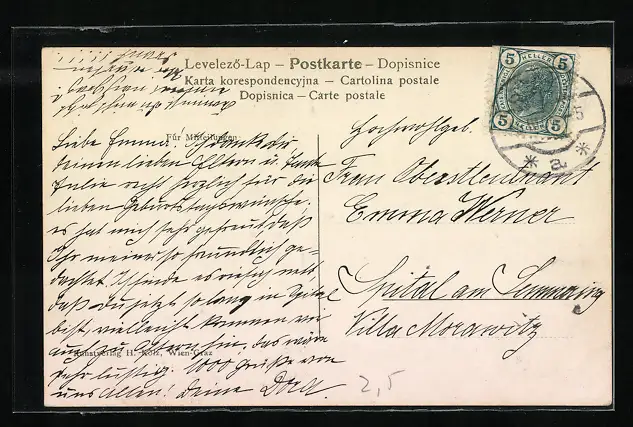 Levelező-Lap – Postkarte – Dopisnice
Karta korespondencyjna – Cartolina postale
Dopisnica – Carte postale
5 HELLER 5
5 5
5
* a *
Für Mitteilungen
Liebe Emma! Ich danke dir,
deinen lieben Eltern u. Tante
Julie recht herzlich für die
lieben Geburtstagswünsche.
Es hat mich sehr gefreut, daß
Ihr meiner so freundlich ge-
dachtet. Ich finde es riesig nett
daß du jetzt so lang in Spital
bist, vielleicht kommen wir
auch zu Ostern hin, das wäre
sehr lustig. 1000 Grüße von
uns allen! Deine Dora
Kunstverlag H. Kölz, Wien-Graz
Hochwohlgeb.
Frau Oberstleutnant
Emma Werner
Spital am Semmering
Villa Morawitz
2,5